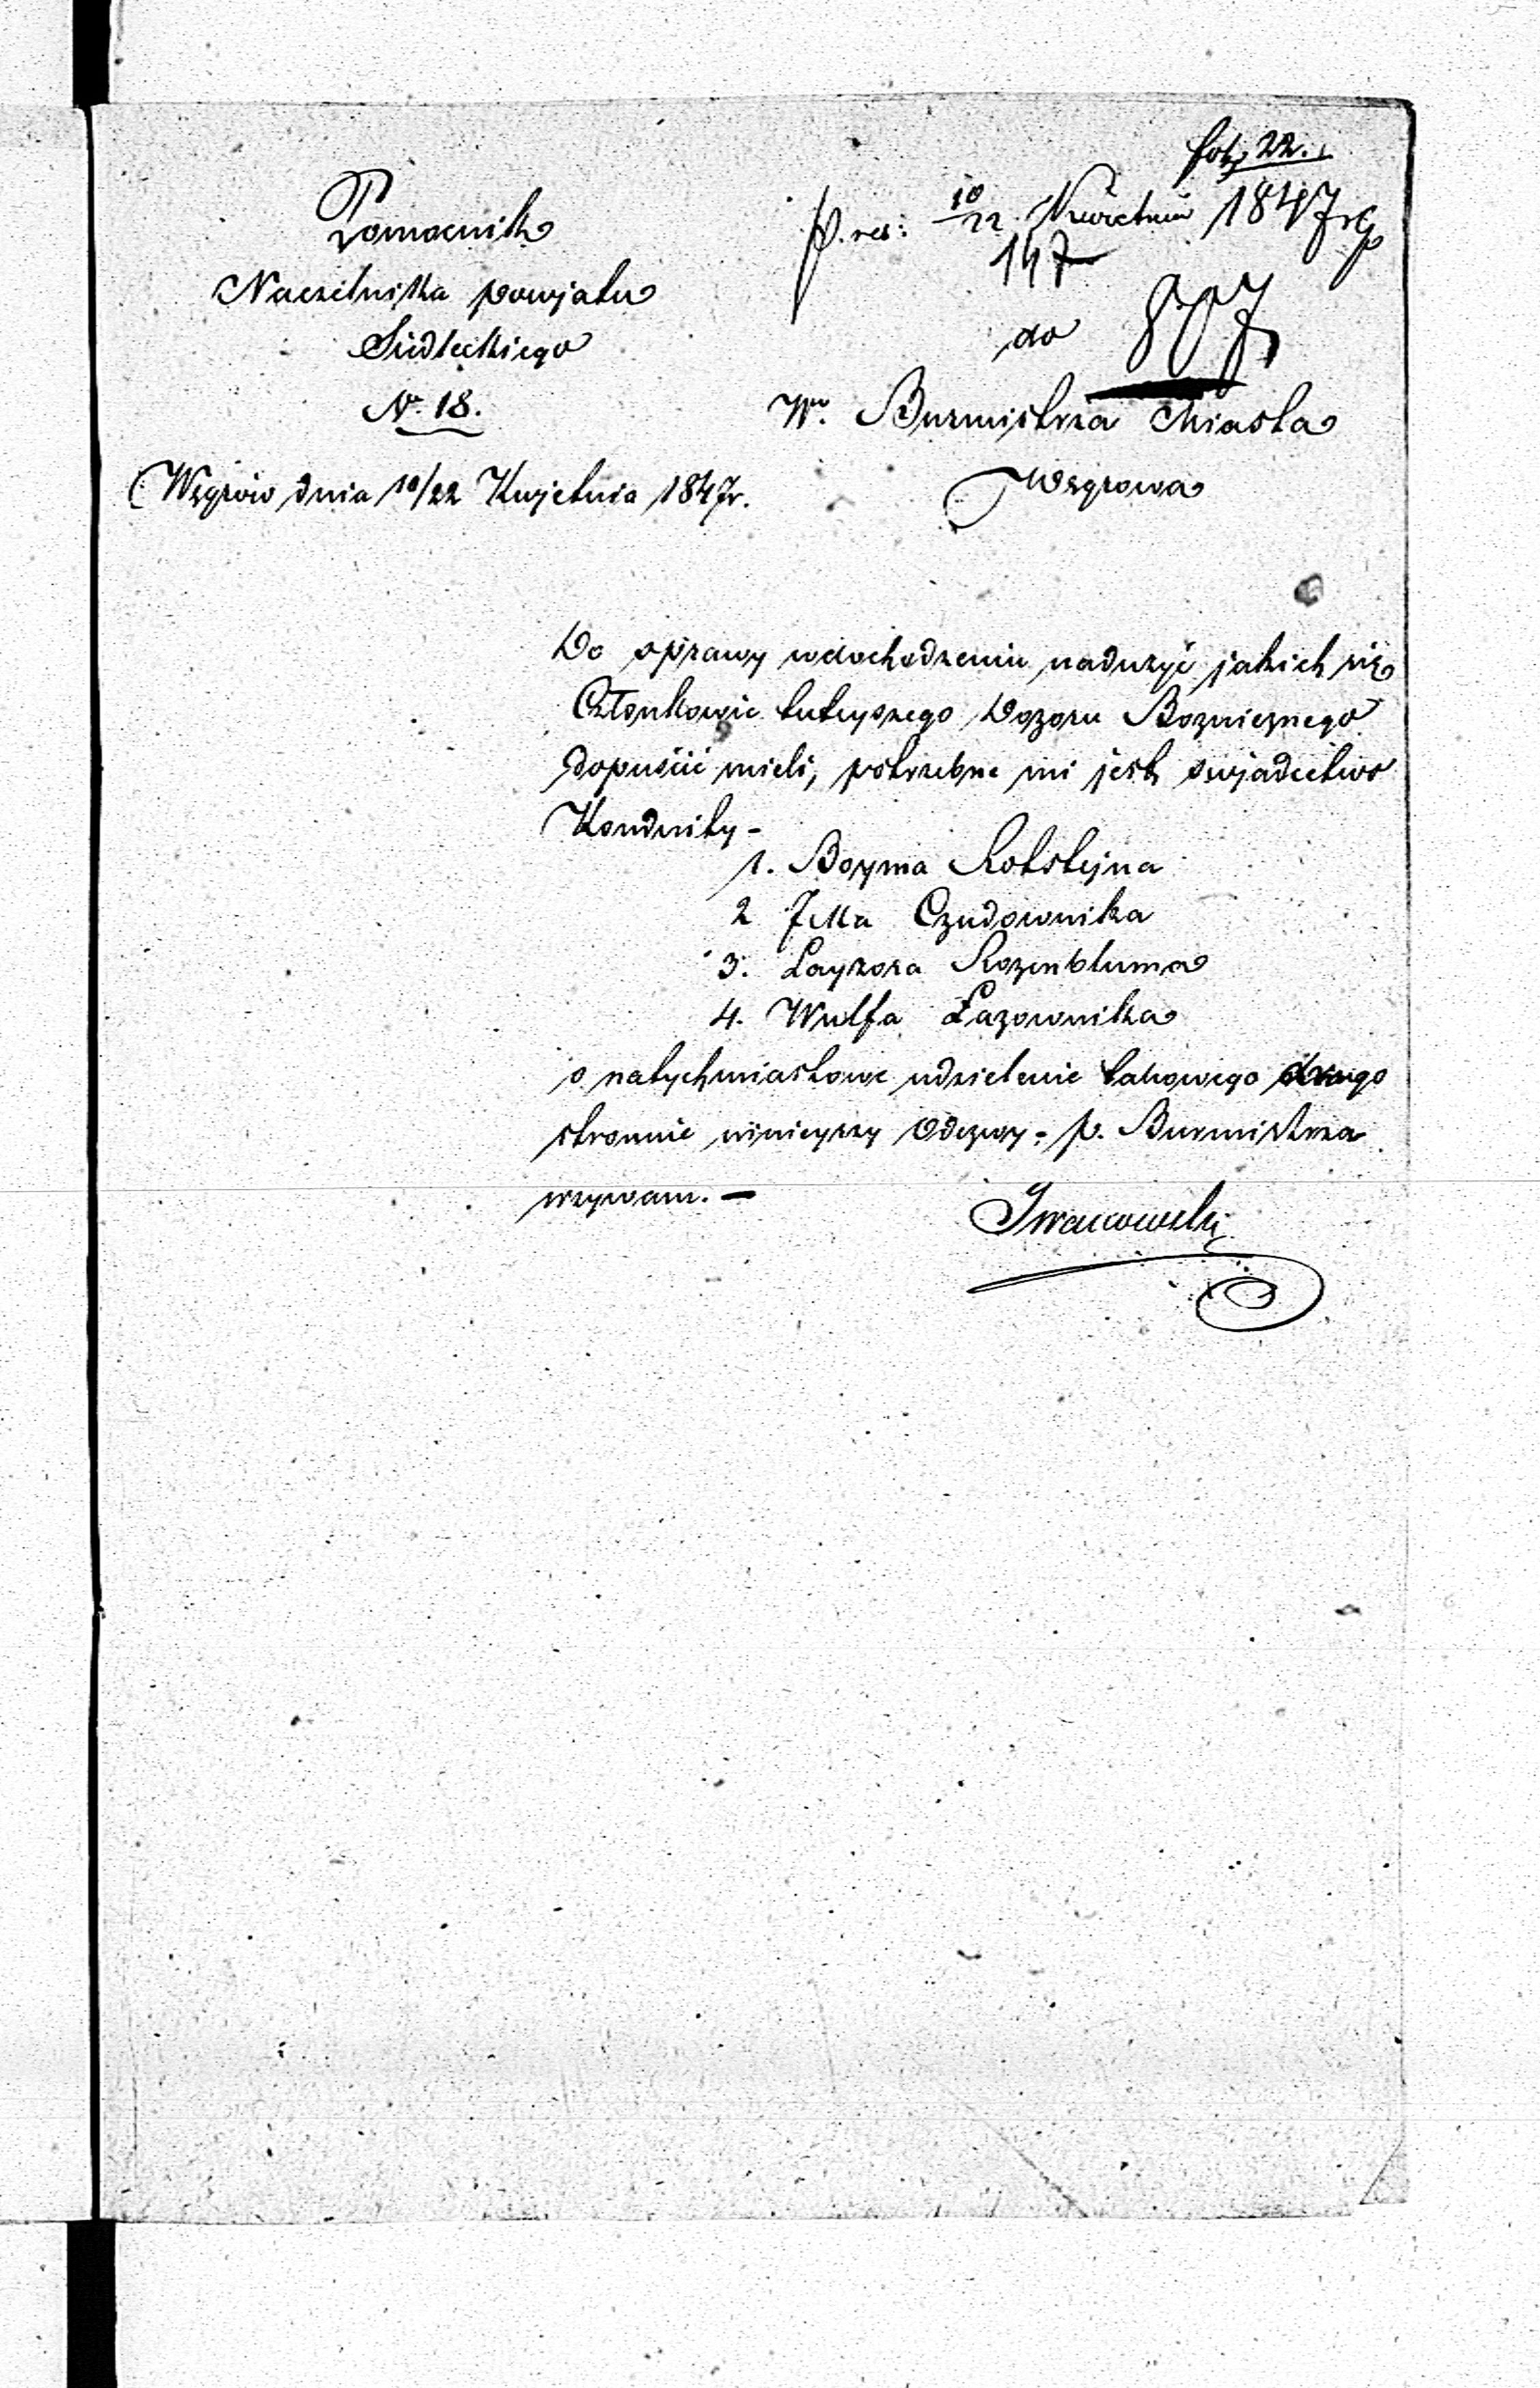 fol. 22.
Pomocnik
Naczelnika powjatu
Siedleckiego
Nr. 18.
Węgrów dnia 10/22 Kwjetnia 1847r.
p. res: 10/22 Kwietnia 1847 r
147
do 807
Wo. Burmistrza Miasta
Węgrowa
Do sprawy wdochodzeniu nadużyć jakich się
Członkowie tuteyszego Dozoru Bozniczego
dopuścić mieli, potrzebne mi jest swjadectwo
Konduity -
1. Boyma Rotstejna
2 Czudownika
3. Layzora Rozenbluma
4. Wulfa Łazownika
o natychmiastowe udzielenie takowego drugo
stronnie ninieyszy Odezwy - p. Burmistrza
wzywam. -
Iwanowski